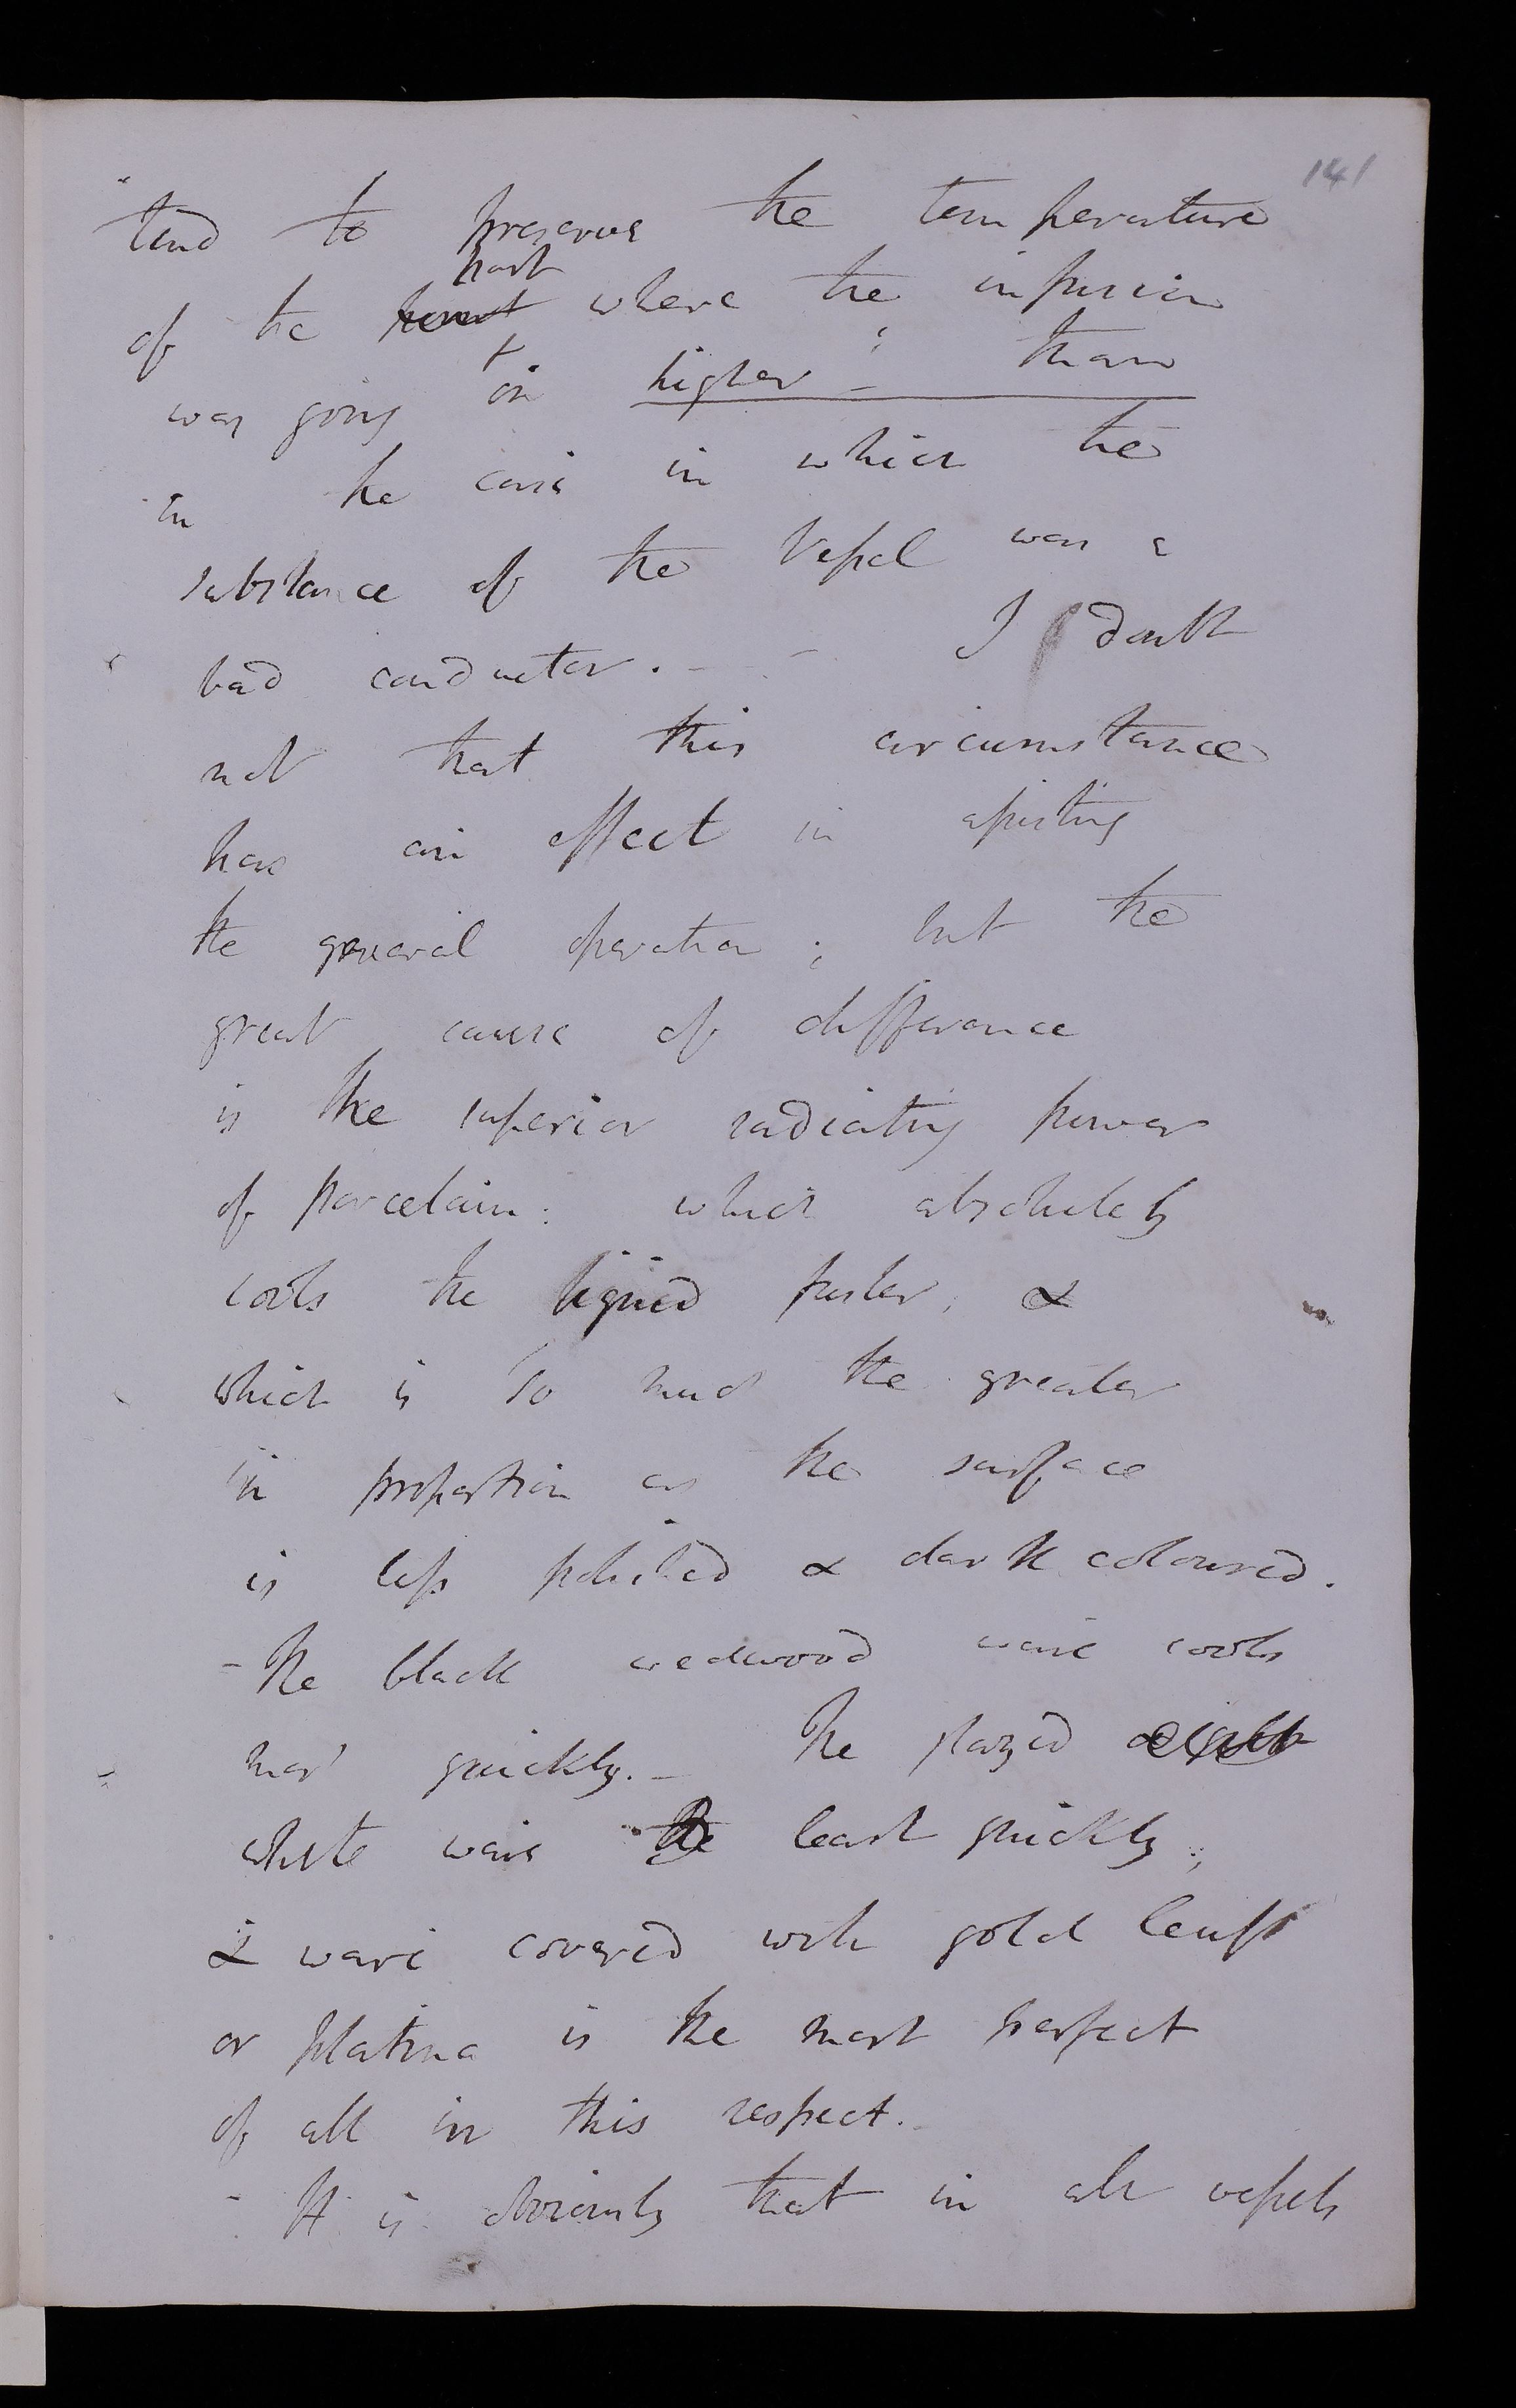 141
tend to preserve the temperature
part
of the where the infusion
was going on higher - than
in the case in which the
substance of the Vessel was a
bad conductor. - - I doubt
not that this circumstance
has an effect in assisting
the general operation; but the
great cause of difference
is the superior radiating power
of porcelain: which absolutely
cools the liquid faster; &
which is so much the greater
in proportion as the surface
is less polished & dark coloured.
- The black wedwood ware cools
most quickly. - The glazed
white ware the least quickly;
& ware covered with gold leaf
or platina is the most perfect
of all in this respect.
- It is obviously that in all vessels